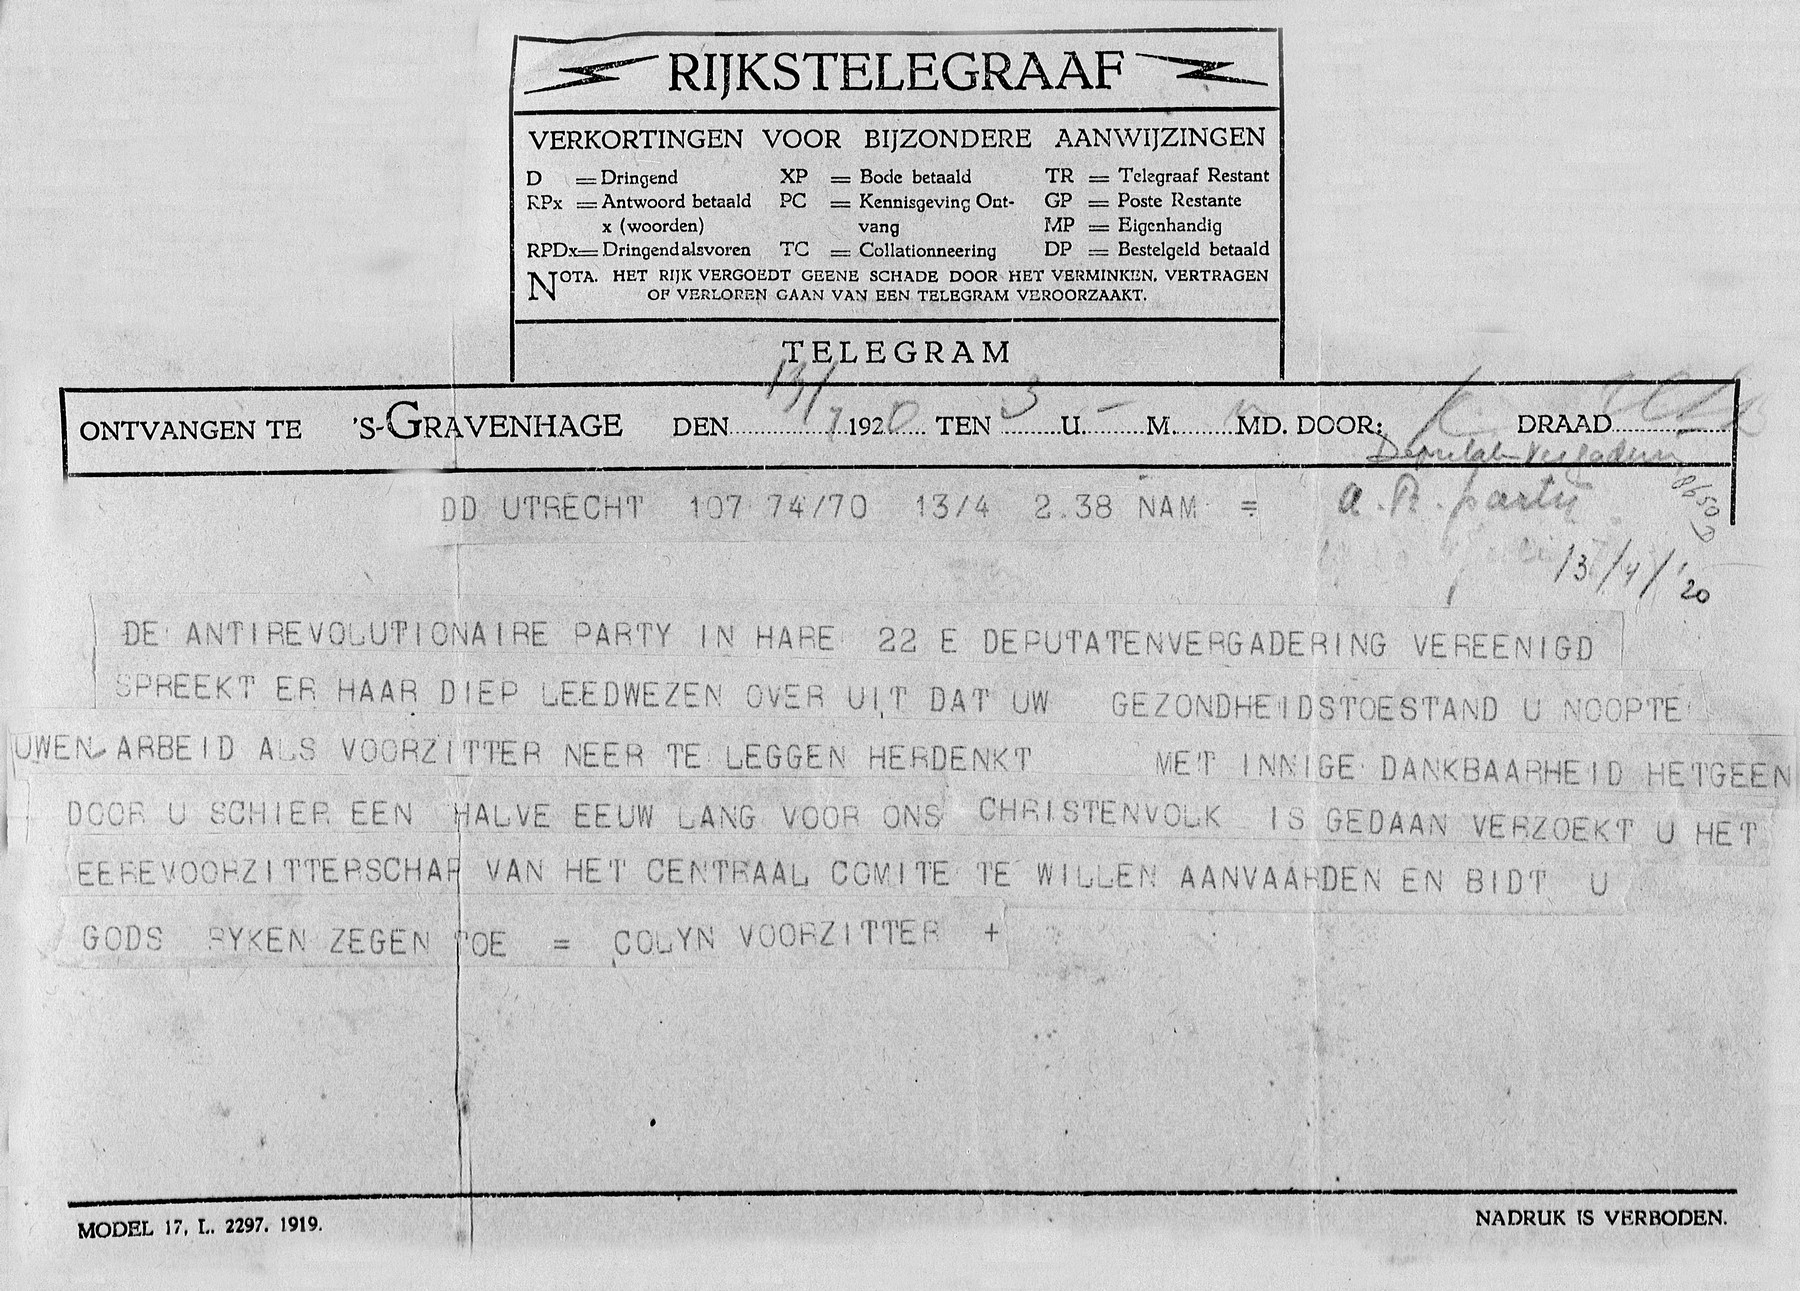 RIJKSTELEGRAAF
VERKORTINGEN VOOR BIJZONDERE AANWIJZINGEN
D = Dringend XP = Bode betaald TR = Telegraaf Restant
RPx = Antwoord betaald PC = Kennisgeving Ont- GP = Poste Restante
x (woorden) vang MP = Eigenhandig
RPDx = Dringend alsvoren TC = Collationneering DP = Bestelgeld betaald
NOTA. HET RIJK VERGOEDT GEENE SCHADE DOOR HET VERMINKEN, VERTRAGEN
OF VERLOREN GAAN VAN EEN TELEGRAM VEROORZAAKT.
TELEGRAM
ONTVANGEN TE 'S-GRAVENHAGE DEN 13/ 1920 TEN 3 U. M. MD. DOOR: DRAAD
Deputaten Vergadering
DD UTRECHT 107 74/70 13/4 2.38 NAM = A. R. partij
13/4/'20
DE ANTIREVOLUTIONAIRE PARTY IN HARE 22 E DEPUTATENVERGADERING VEREENIGD
SPREEKT ER HAAR DIEP LEEDWEZEN OVER UIT DAT UW GEZONDHEIDSTOESTAND U NOOPTE
UWEN ARBEID ALS VOORZITTER NEER TE LEGGEN HERDENKT MET INNIGE DANKBAARHEID HETGEEN
DOOR U SCHIER EEN HALVE EEUW LANG VOOR ONS CHRISTENVOLK IS GEDAAN VERZOEKT U HET
EEREVOORZITTERSCHAP VAN HET CENTRAAL COMITE TE WILLEN AANVAARDEN EN BIDT U
GODS RYKEN ZEGEN TOE = COLYN VOORZITTER +
MODEL 17, L. 2297. 1919.
NADRUK IS VERBODEN.